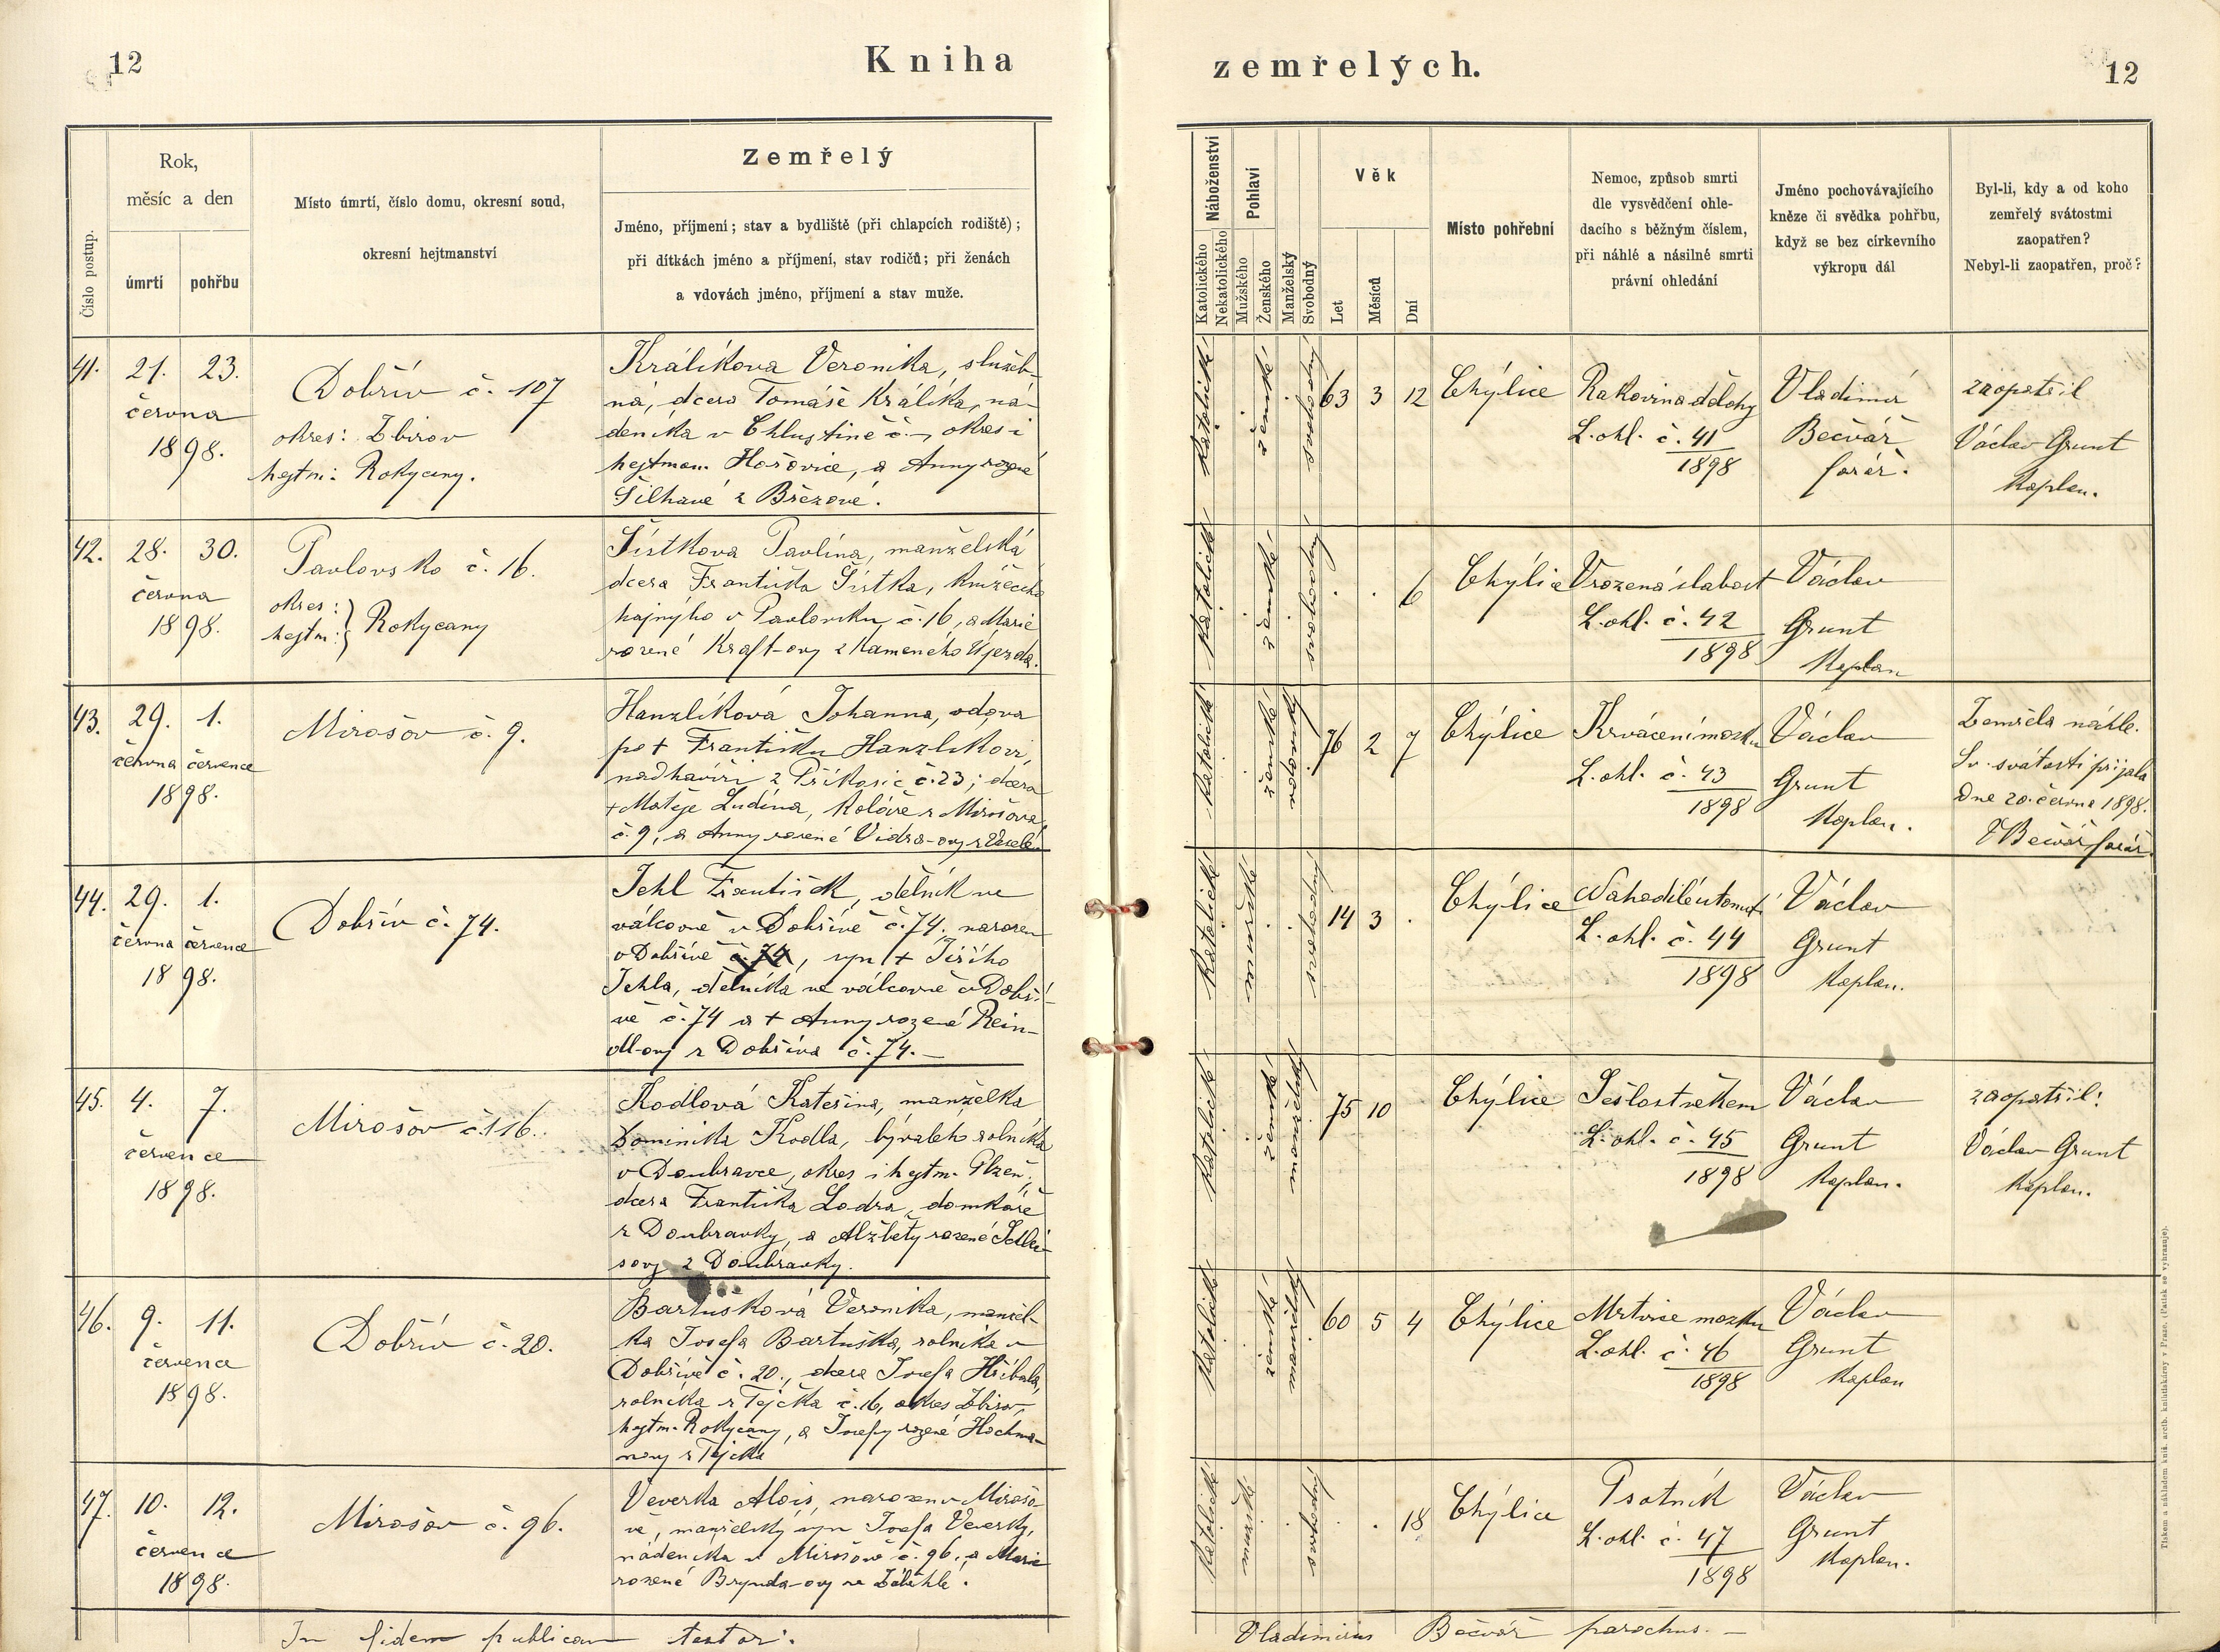 12
Kniha
zemřelých.
12
Číslo postup.
Rok,
měsíc a den
úmrtí
pohřbu
Místo úmrtí, číslo domu, okresní soud,
okresní hejtmanství
Zemřelý
Jméno, příjmení; stav a bydliště (při chlapcích rodiště);
při dítkách jméno a příjmení, stav rodičů; při ženách
a vdovách jméno, příjmení a stav muže.
Náboženství
Katolického
Nekatolického
Pohlaví
Mužského
Ženského
Manželský
Svobodný
Věk
Let
Měsíců
Dní
Místo pohřební
Nemoc, způsob smrti
dle vysvědčení ohle-
dacího s běžným číslem,
při náhlé a násilné smrti
právní ohledání
Jméno pochovávajícího
kněze či svědka pohřbu,
když se bez církevního
výkropu dál
Byl-li, kdy a od koho
zemřelý svátostmi
zaopatřen?
Nebyl-li zaopatřen, proč?
41. 21. 23.
června
1898.
Dobřív č. 107
okres: Zbirov
hejtm: Rokycany.
Králíkova Veronika, služeb-
ná, dcera Tomáše Králíka, ná-
deníka v Chlustině č. —, okres i
hejtman. Hořovice, a Anny rozené
Šilhavé z Březové.
katolické
ženské
svobodný
63 3 12
Chýlice
Rakovina dělohy
L. ohl. č. 41
1898
Vladimír
Bečvář
farář.
zaopatřil
Václav Grunt
kaplan.
42. 28. 30.
června
1898.
Pavlovsko č. 16.
okres:
hejtm: Rokycany
Šístkova Pavlína, manželská
dcera Františka Šístka, knížecího
hajného v Pavlovsku č. 16, a Marie
rozené Kraft-ovy z Kamenného Újezda.
katolické
ženské
svobodný
. . 6
Chýlice
Vrozená slabost
L. ohl. č. 42
1898
Václav
Grunt
kaplan
43. 29. 1.
června července
1898.
Mirošov č. 9.
Hanzlíková Johanna, vdova
po + Františku Hanzlíkovi,
nadhavíři z Příkosic č. 23; dcera
+ Matěje Ludína, koláře z Mirošova
č. 9, a Anny rozené Vidra-ovy z
katolické
ženské
vdovský
76 2 7
Chýlice
Krvácení mozku
L. ohl. č. 43
1898
Václav
Grunt
kaplan.
Zemřela náhle.
Sv. svátosti přijala
dne 20. června 1898.
VBečvář farář
44. 29. 1.
června července
1898.
Dobřív č. 74.
Jehl František, dělník ve
válcovně v Dobřívě č. 74, narozen
v Dobřívě č. 74, syn + Jiřího
Jehla, dělníka ve válcovně v Dobří-
vě č. 74 a + Anny rozené Rein-
dl-ovy z Dobříva č. 74. —
katolické
mužské
svobodný
14 3 .
Chýlice
Nahodilé utonutí
L. ohl. č. 44
1898
Václav
Grunt
kaplan.
45. 4. 7.
července
1898.
Mirošov č. 116.
Kodlová Kateřina, manželka
Dominika Kodla, bývalého rolníka
v Doubravce, okres i hejtm. Plzeň,
dcera Františka Lodra, domkáře
z Doubravky, a Alžběty rozené
sovy z Doubravky.
katolické
ženské
manželský
75 10
Chýlice
Sešlost věkem
L. ohl. č. 45
1898
Václav
Grunt
kaplan.
zaopatřil:
Václav Grunt
kaplan.
46. 9. 11.
července
1898.
Dobřív č. 20.
Bartušková Veronika, manžel-
ka Josefa Bartuška, rolníka v
Dobřívě č. 20., dcera Josefa Hříbala,
rolníka z Tejčka č. 16, okres Zbirov,
hejtm. Rokycany, a Josefy rozené Hochma-
novy z Tejčka
katolické
ženské
manželský
60 5 4
Chýlice
Mrtvice mozku
L. ohl. č. 46
1898
Václav
Grunt
kaplan
47. 10. 12.
července
1898.
Mirošov č. 96.
Veverka Alois, narozen v Mirošo-
vě, manželský syn Josefa Veverky,
nádeníka v Mirošově č. 96., a Marie
rozené Brynda-ovy ze Zábělé.
katolické
mužské
svobodný
. . 18
Chýlice
Psotník
L. ohl. č. 47
1898
Václav
Grunt
kaplan.
In fidem publicam testor:
Vladimirus Bečvář parochus. —
Tiskem a nákladem kníž. arcib. knihtiskárny v Praze. (Patisk se vyhrazuje).